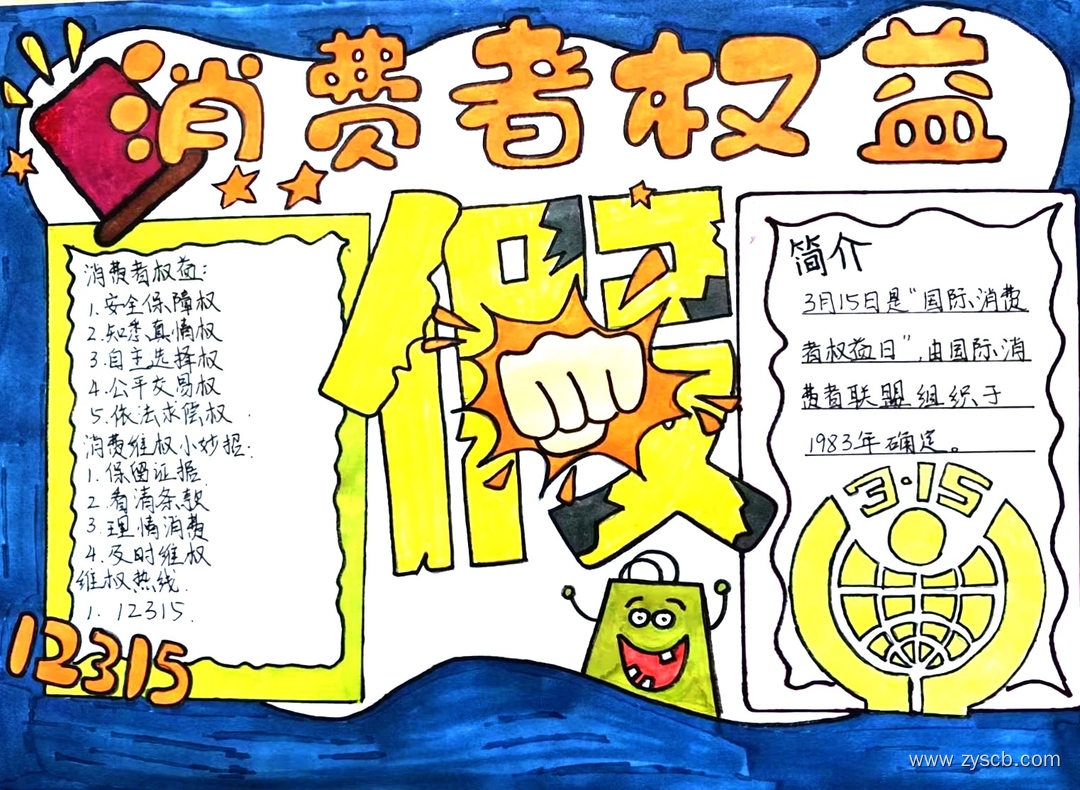 消费者权益
消费者权益:
1.安全保障权
2.知悉真情权
3.自主选择权
4.公平交易权
5.依法求偿权.
消费维权小妙招:
1.保留证据.
2.看清条款
3.理情消费
4.及时维权
维权热线.
1.12315.
12315
假
简介
3月15日是“国际消费
者权益日”,由国际消
费者联盟组织于
1983年确定。
3·15
www.zyscb.com